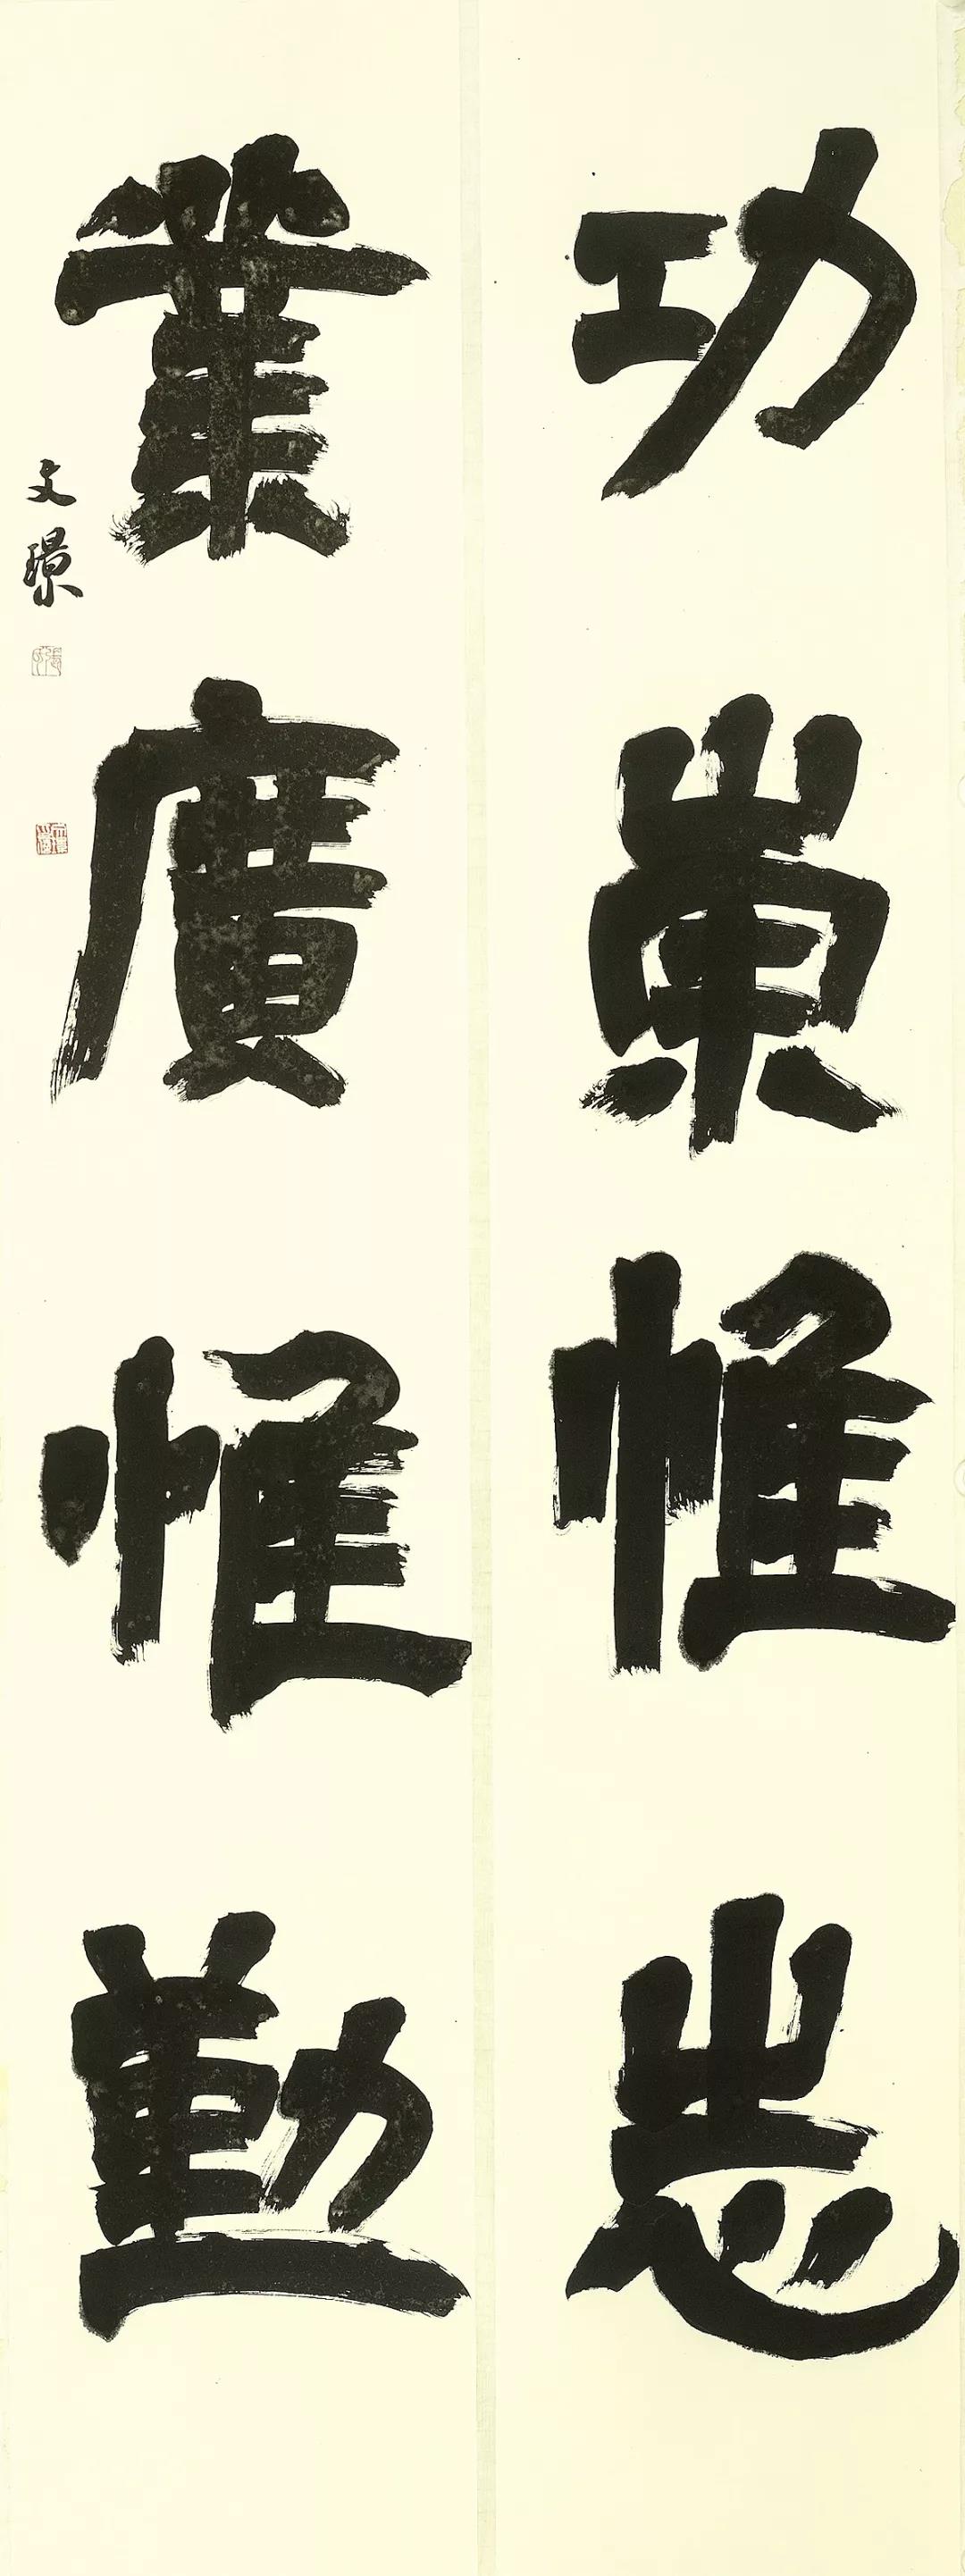 功崇惟志
業廣惟勤
文璟